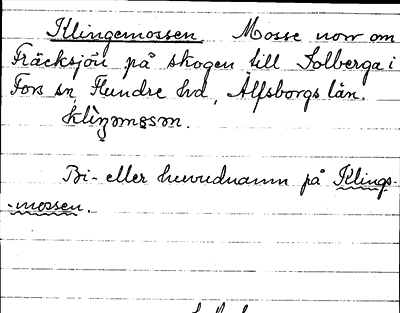 Klingemossen Mosse norr om
Fräcksjön på skogen till Solberga i
Fors sn, Flundre hd, Älfsborgs län.
Bi- eller huvudnamn på Klings-
-mossen.